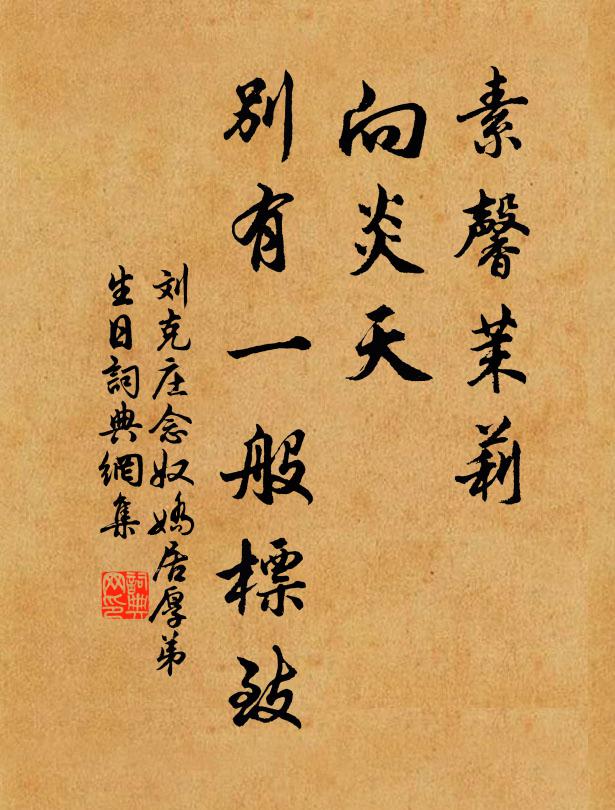 素馨茉莉
向炎天
别有一般標致
刘克庄念奴嬌居厚弟
生日詞典網集
詞典
网印